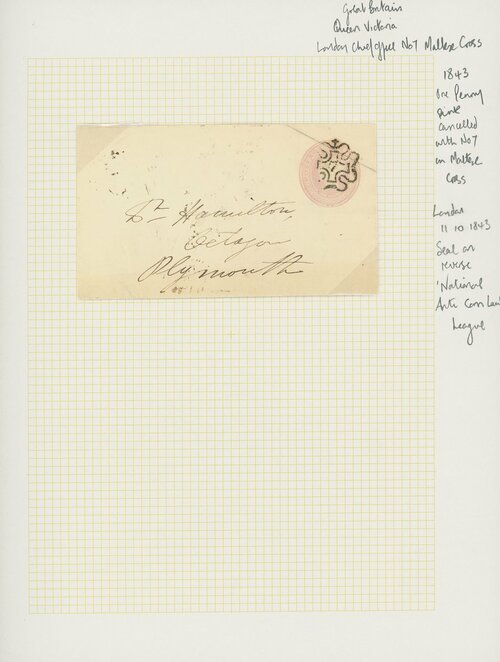 Great Britain
Queen Victoria
London Chief Office No7 Maltese Cross
1843
One Penny
pink
cancelled
with No7
in Maltese
Cross
London
11 10 1843
Seal on
reverse
'National
Anti Corn Law
League
Dr Hamilton,
Octagon
Plymouth
7